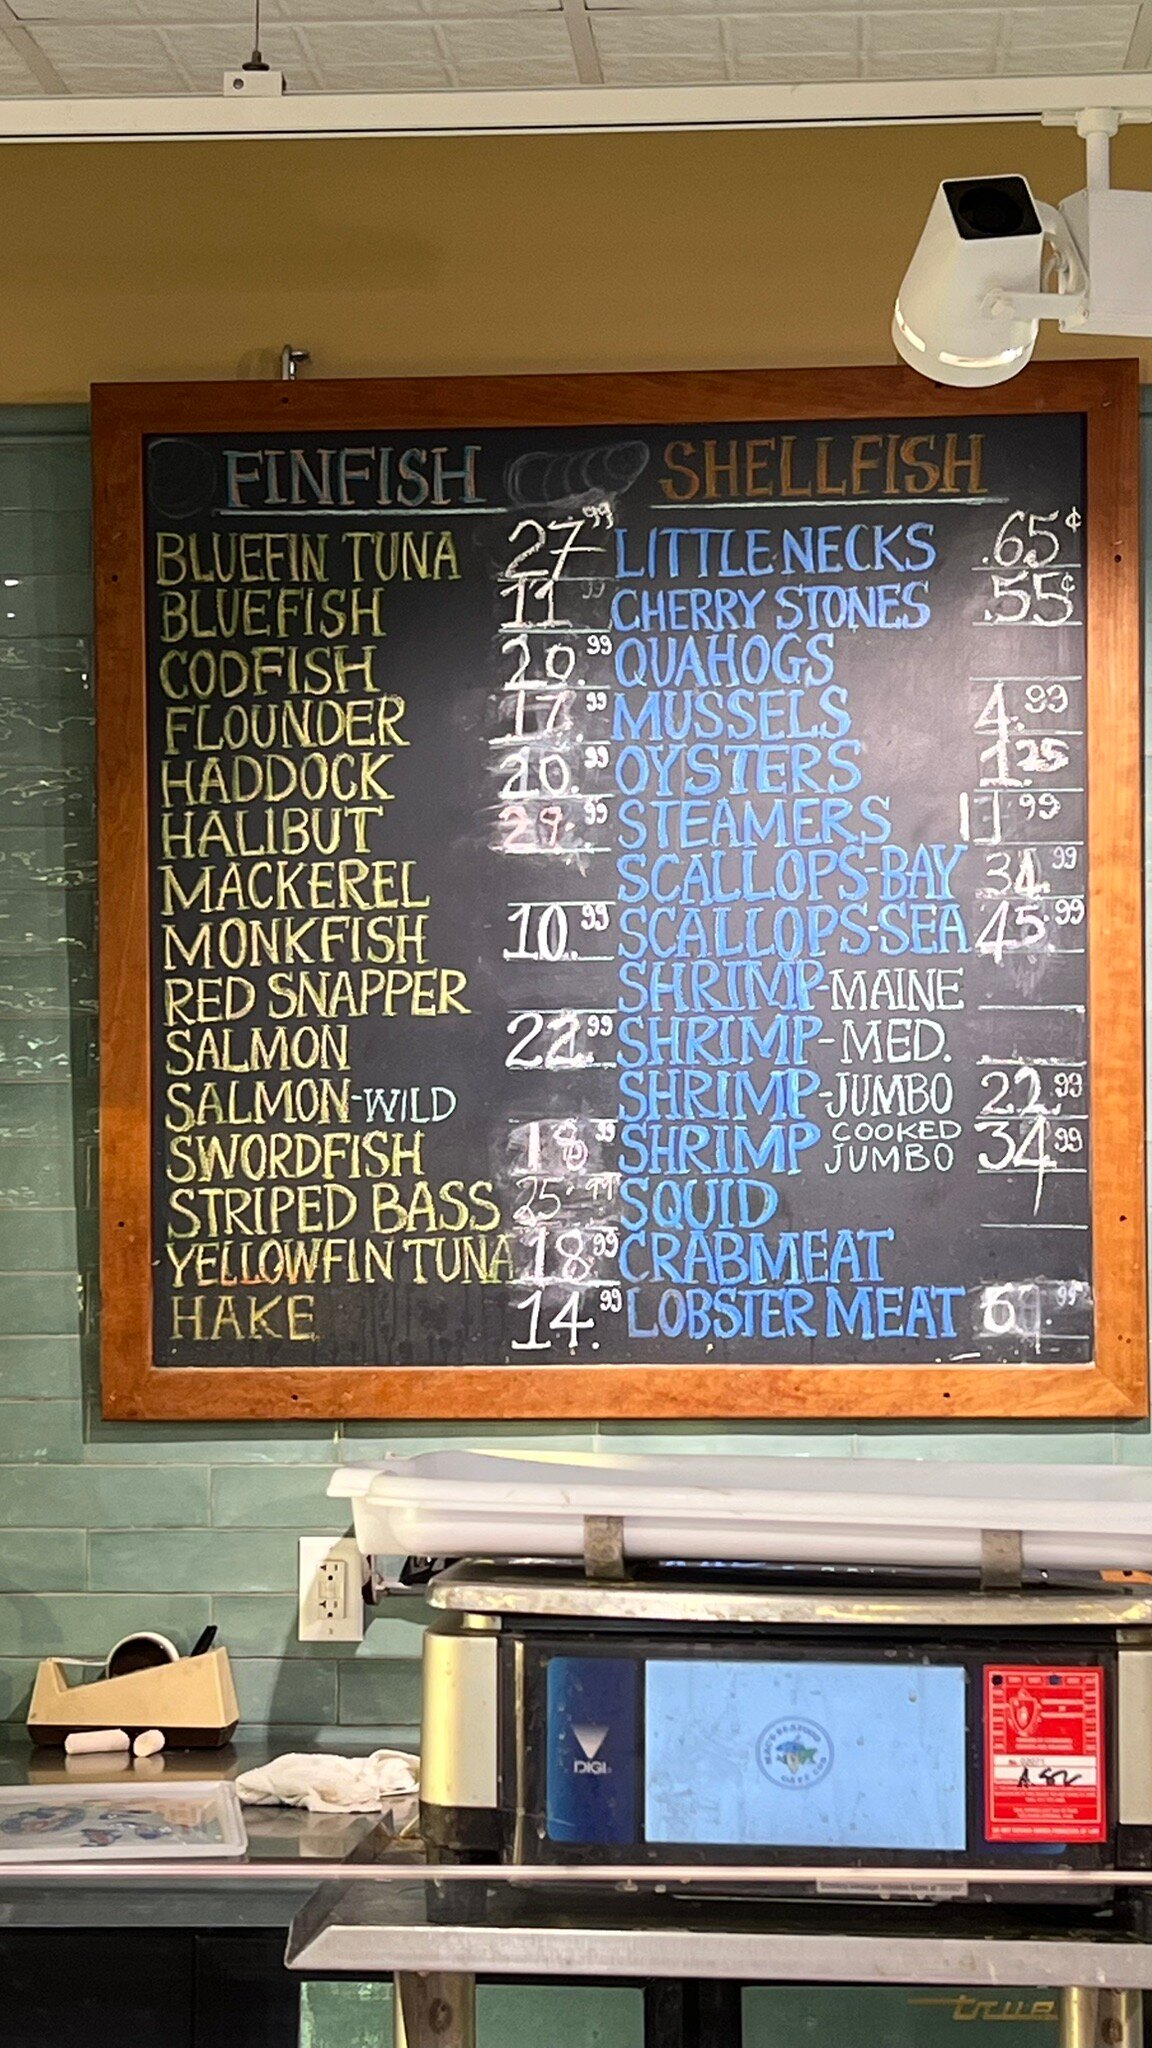 FINFISH
BLUEFIN TUNA 27.99
BLUEFISH 11.99
CODFISH 20.99
FLOUNDER 17.99
HADDOCK 20.99
HALIBUT 29.99
MACKEREL
MONKFISH 10.99
RED SNAPPER
SALMON 22.99
SALMON-WILD
SWORDFISH 18.99
STRIPED BASS 25.99
YELLOWFIN TUNA 18.99
HAKE 14.99
SHELLFISH
LITTLE NECKS .65¢
CHERRY STONES .55¢
QUAHOGS
MUSSELS 4.99
OYSTERS 1.25
STEAMERS 11.99
SCALLOPS-BAY 34.99
SCALLOPS-SEA 45.99
SHRIMP-MAINE
SHRIMP-MED.
SHRIMP-JUMBO 22.99
SHRIMP COOKED JUMBO 34.99
SQUID
CRABMEAT
LOBSTER MEAT
DIGI
true